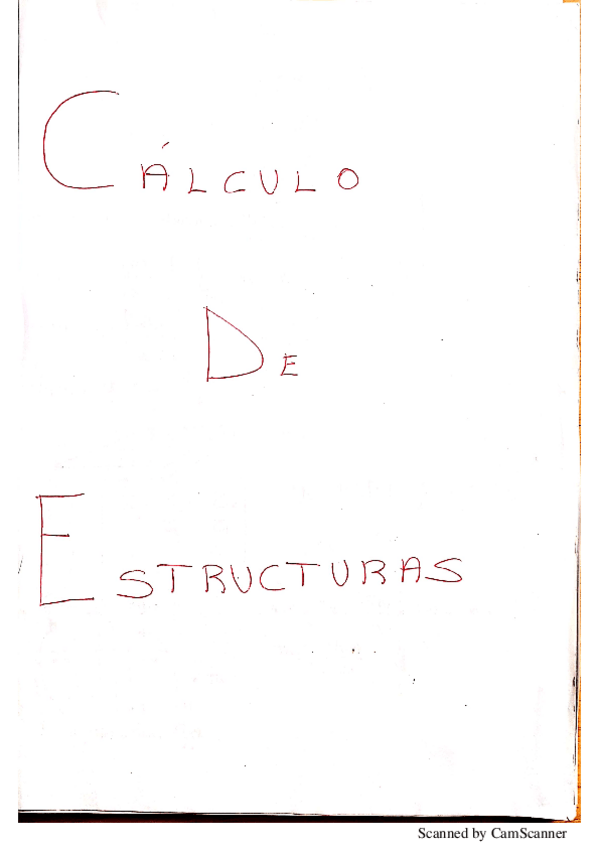 CÁLCULO
DE
ESTRUCTURAS
Scanned by CamScanner